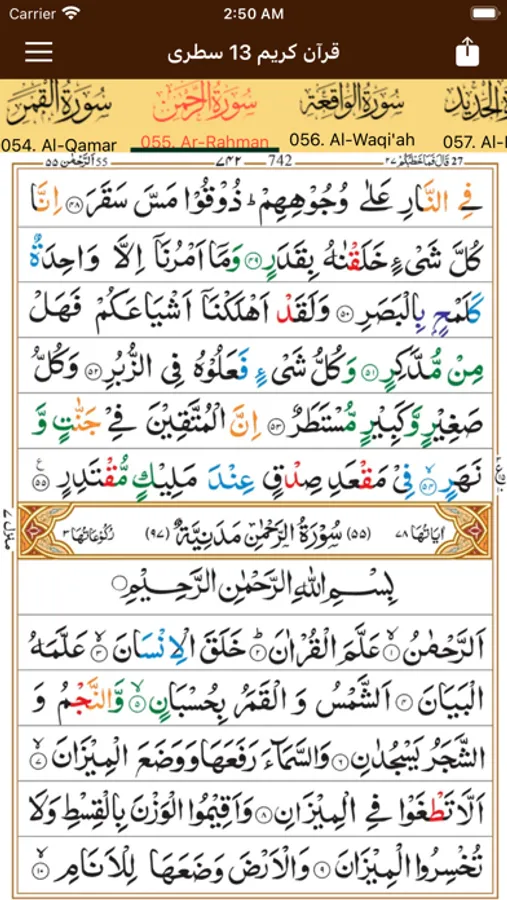 Carrier 2:50 AM
قرآن کریم 13 سطری
سورة القمر سورة الرحمن سورة الواقعة سورة الحديد
054. Al-Qamar 055. Ar-Rahman 056. Al-Waqi'ah 057. Al-
الرَّحْمٰن ٥٥ 55 ٧٤٢ 742 قَالَ فَمَا خَطْبُكُمْ ٢٧ 27
فِي النَّارِ عَلٰى وُجُوْهِهِمْ ؕ ذُوْقُوْا مَسَّ سَقَرَ ۝٤٨ اِنَّا
كُلَّ شَیْءٍ خَلَقْنٰهُ بِقَدَرٍ ۝٤٩ وَمَاۤ اَمْرُنَاۤ اِلَّا وَاحِدَةٌ
كَلَمْحٍۭ بِالْبَصَرِ ۝٥٠ وَلَقَدْ اَهْلَكْنَاۤ اَشْیَاعَكُمْ فَهَلْ
مِنْ مُّدَّكِرٍ ۝٥١ وَكُلُّ شَیْءٍ فَعَلُوْهُ فِی الزُّبُرِ ۝٥٢ وَكُلُّ
صَغِیْرٍ وَّكَبِیْرٍ مُّسْتَطَرٌ ۝٥٣ اِنَّ الْمُتَّقِیْنَ فِیْ جَنّٰتٍ وَّ
نَهَرٍ ۝٥٤ۙ فِیْ مَقْعَدِ صِدْقٍ عِنْدَ مَلِیْكٍ مُّقْتَدِرٍ ۝٥٥ۧ
اٰیَاتُهَا ٧٨ (٥٥) سُوْرَةُ الرَّحْمٰنِ مَدَنِیَّةٌ (٩٧) رُكُوْعَاتُهَا ٣
منزل ٧
بِسْمِ اللّٰهِ الرَّحْمٰنِ الرَّحِیْمِ
اَلرَّحْمٰنُ ۝١ۙ عَلَّمَ الْقُرْاٰنَ ۝٢ؕ خَلَقَ الْاِنْسَانَ ۝٣ۙ عَلَّمَهُ
الْبَیَانَ ۝٤ اَلشَّمْسُ وَ الْقَمَرُ بِحُسْبَانٍ ۝٥ۙ وَّالنَّجْمُ وَ
الشَّجَرُ یَسْجُدٰنِ ۝٦ وَالسَّمَآءَ رَفَعَهَا وَوَضَعَ الْمِیْزَانَ ۝٧ۙ
اَلَّا تَطْغَوْا فِی الْمِیْزَانِ ۝٨ وَاَقِیْمُوا الْوَزْنَ بِالْقِسْطِ وَلَا
تُخْسِرُوا الْمِیْزَانَ ۝٩ وَالْاَرْضَ وَضَعَهَا لِلْاَنَامِ ۝١٠ۙ